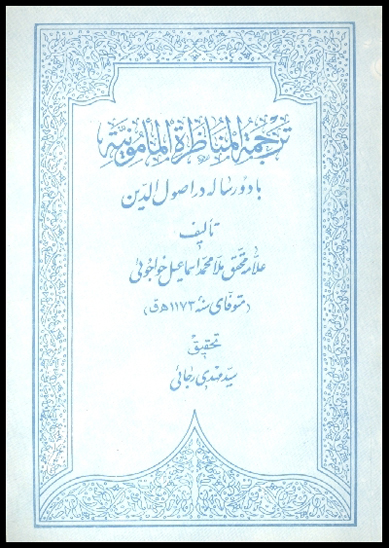 ترجمة المناظرة المأمونیة
با دو رساله در اصول الدین
تألیف
علامه محقق ملا محمد اسماعیل خواجوئی
(متوفای سنه ۱۱۷۳ ه‍ ق)
تحقیق
سید مهدی رجائی